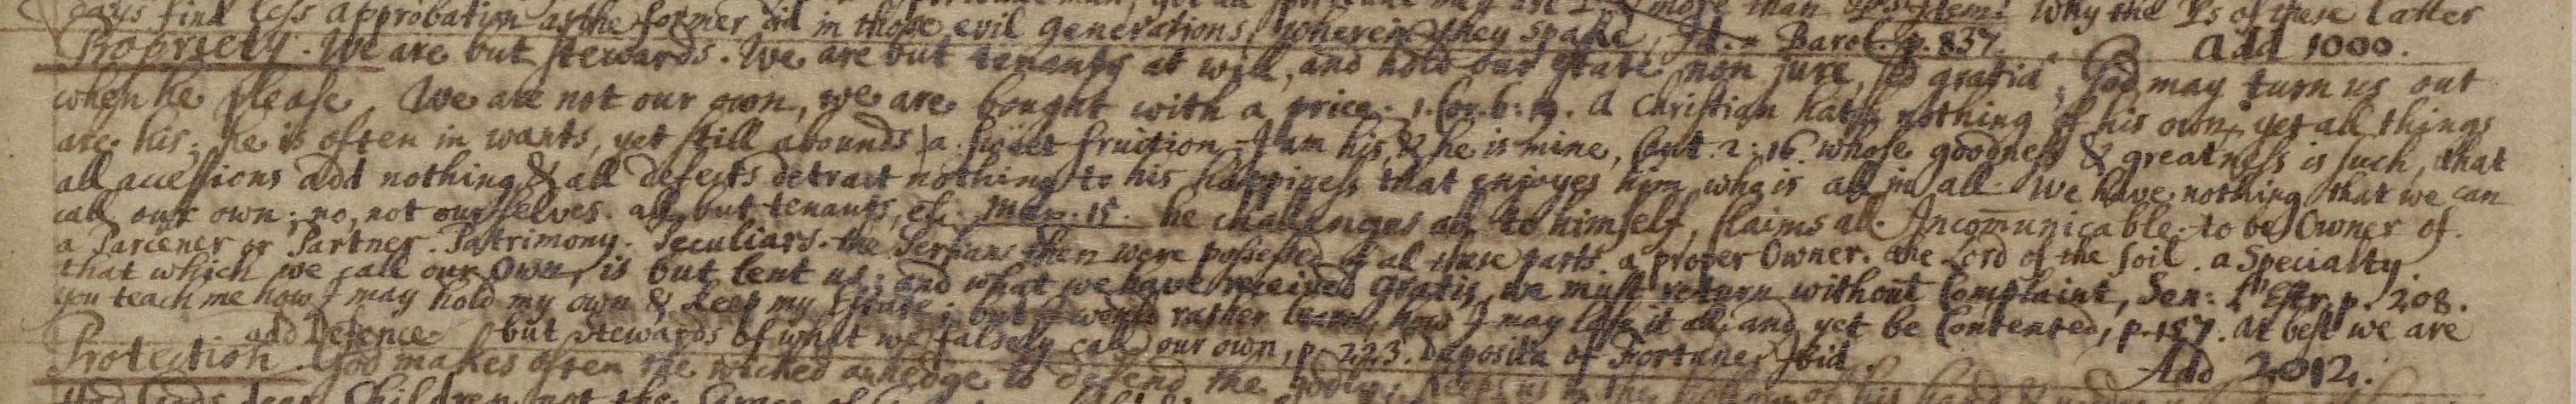 days find less approbation as the former did in those evil generations, wherein they spake, Id. Barol. p. 837. more than Why the Ps of these latter
Propriety. We are but stewards. We are but tenants at will, and hold our state non jure, sed gratia; God may turn us out Add 1000.
when he please. We are not our own, we are bought with a price. 1. Cor. 6: 19. A Christian hath nothing of his own, yet all things
are his; he is often in wants, yet still abounds a sweet fruition - I am his, & he is mine, Cant. 2: 16. whose goodness & greatness is such, that
all accessions add nothing, & all defects detract nothing to his happiness that enjoyes him who is all in all. We have nothing that we can
call our own; no, not ourselves. all but tenants, 15. he challenges all to himself, claims all. Incomunicable. to be Owner of.
a Parcener or Partner. Patrimony. Peculiars. the then were possessed of al these parts. a proper Owner. the Lord of the soil. a Specialty.
that which we call our Own, is but lent us; and what we have received gratis, we must return without Complaint, Sen: L'Estr. p. 208.
you teach me how I may hold my own & keep my Estate; but I would rather learn how I may lose it all, and yet be Contented, p. 187. At best we are
add Defence but Stewards of what we falsely call our own, p. 223. Deposita of Fortune, Ibid.
Protection. God makes often the wicked an hedge to defend the godly; keeps us in the hollow of his hand & Add 2012.
Children not the